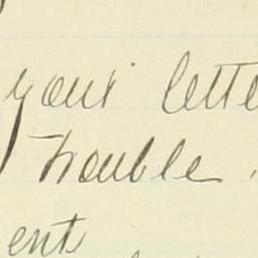 your lette
trouble.
ent